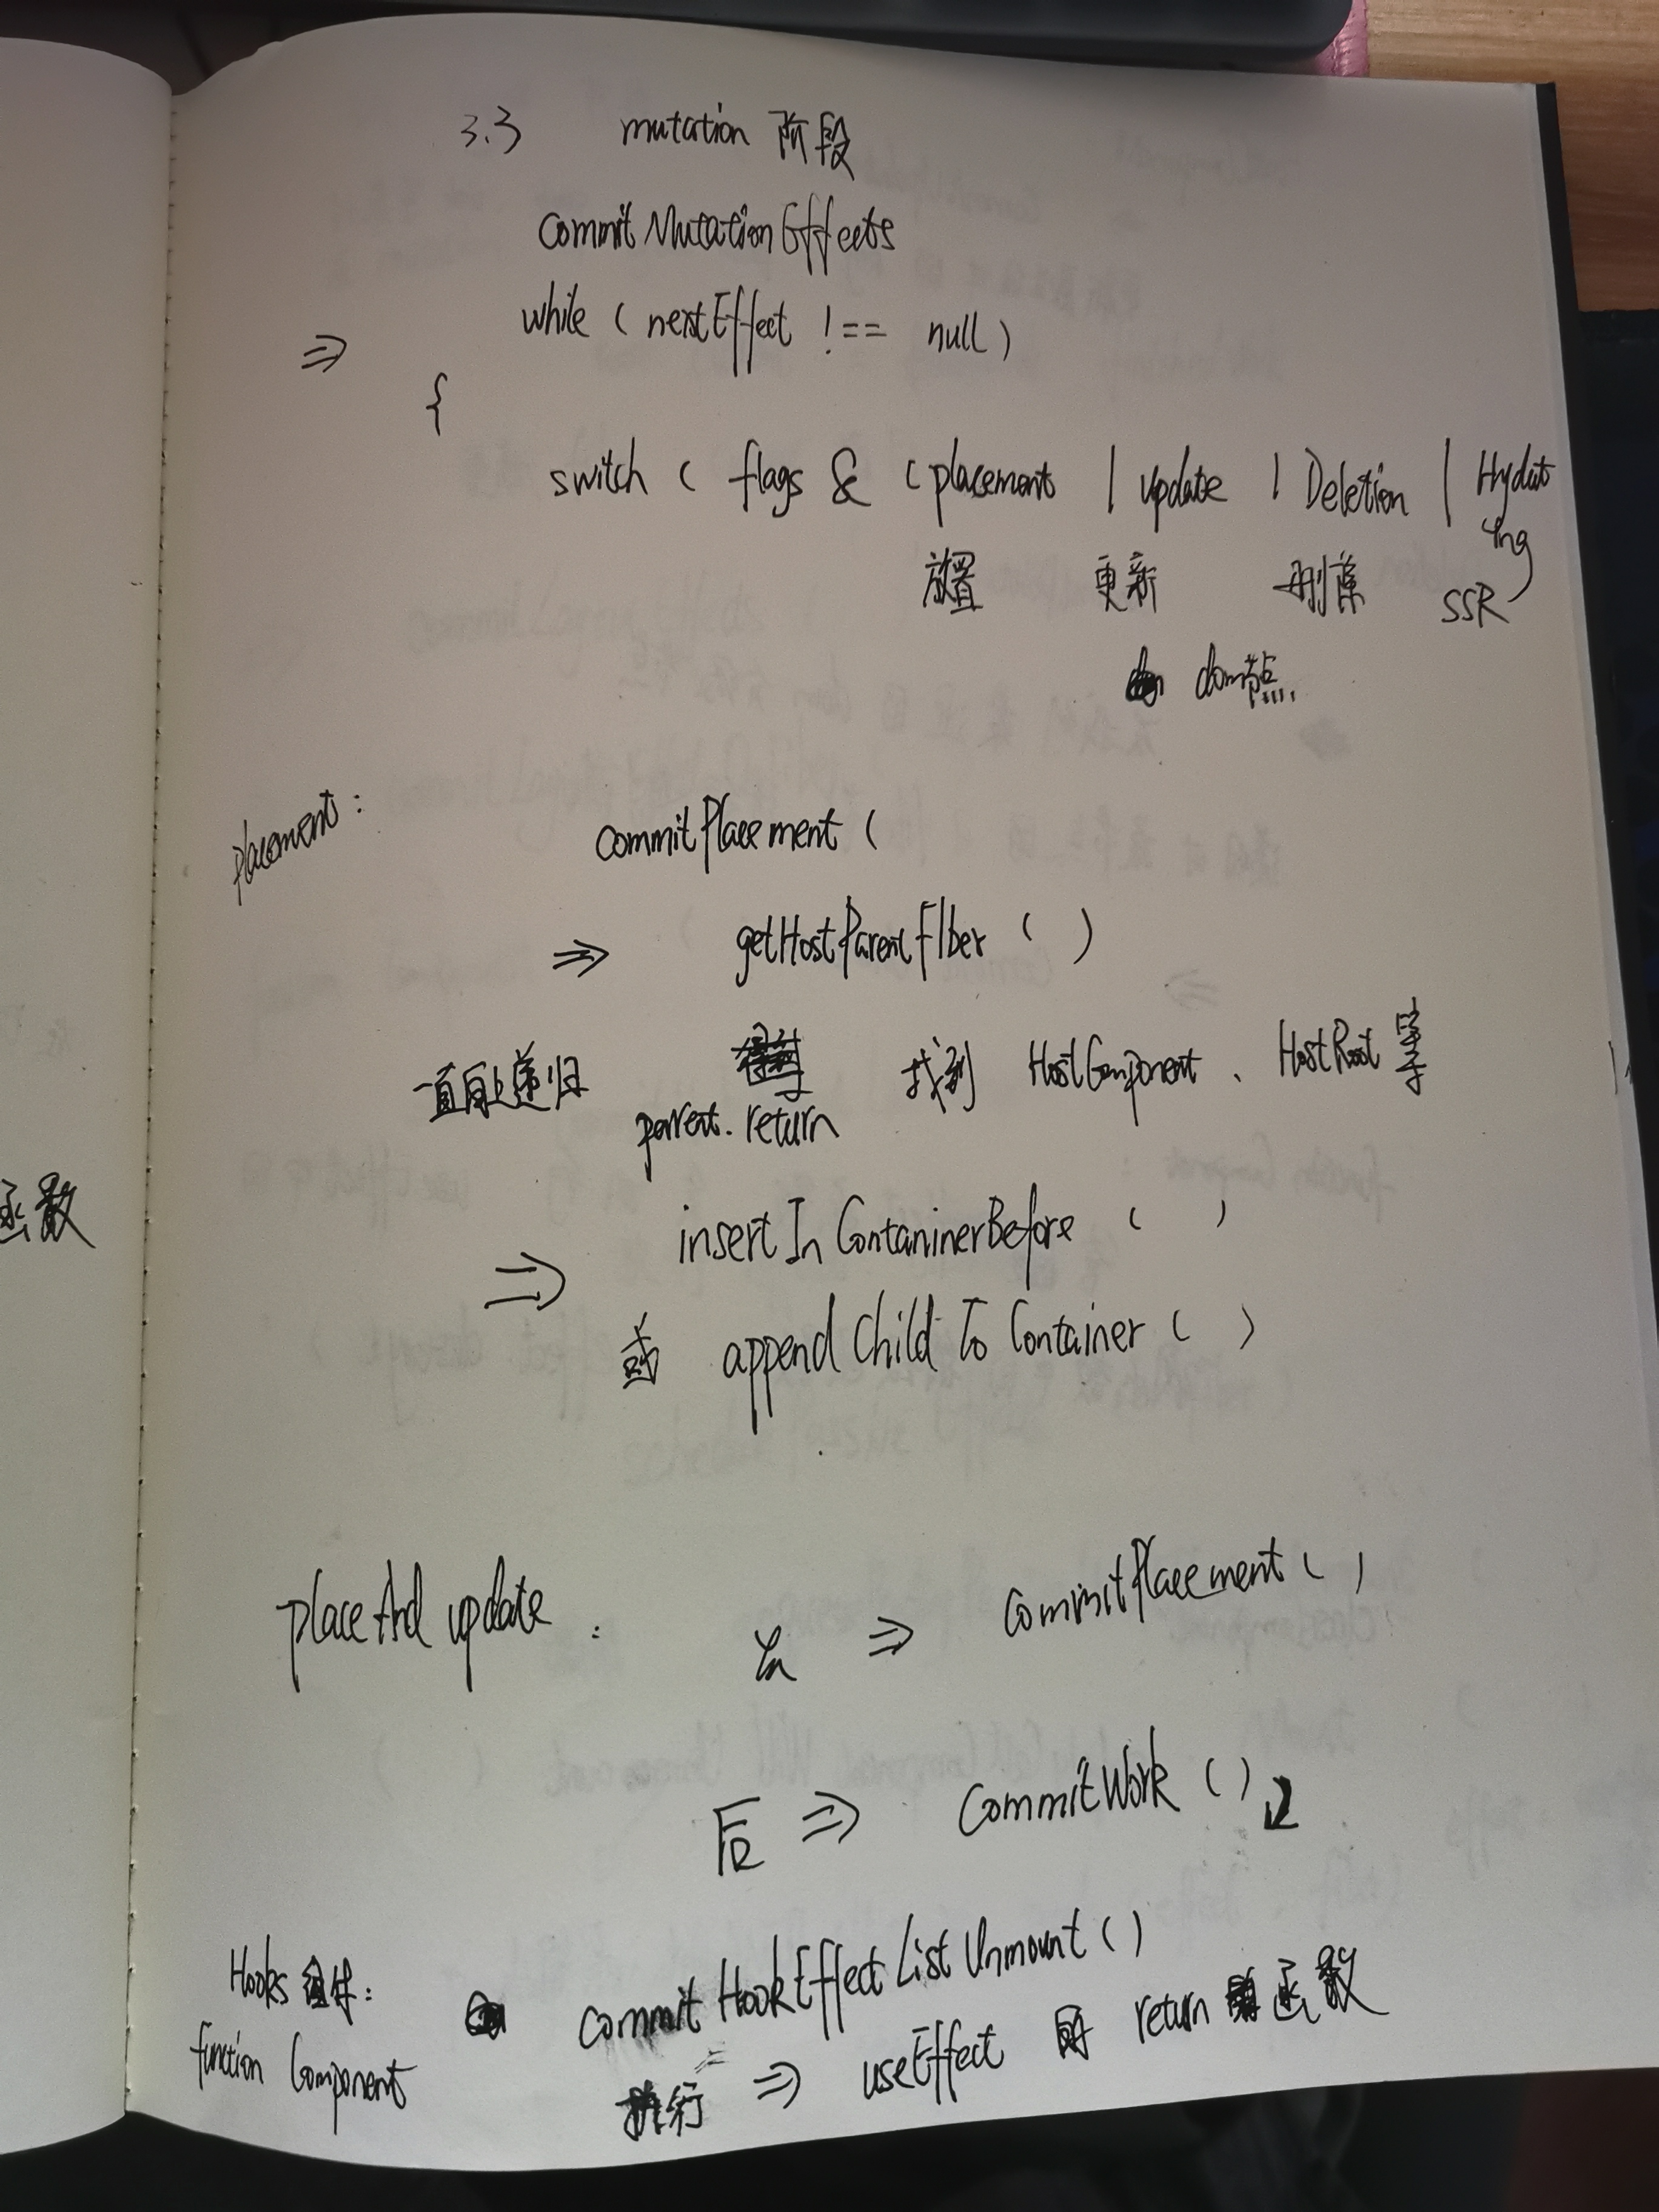 3.3 mutation 阶段
commitMutationEffects
while ( nextEffect !== null )
⇒
{
switch ( flags & ( placement | update | Deletion | Hydrat
ing
放置 更新 删除 SSR
dom节点
placement:
commitPlacement (
⇒ getHostParentFiber ( )
一直向上递归 parent.return 找到 HostComponent、HostRoot 等
⇒ insertInContaninerBefore ( )
或 appendChildToContainer ( )
函数
placeAnd update : 先 ⇒ commitPlacement ( )
后 ⇒ commitWork ( )
Hooks 组件: commitHookEffectListUnmount ( )
function Component 执行 ⇒ useEffect 的 return 函数